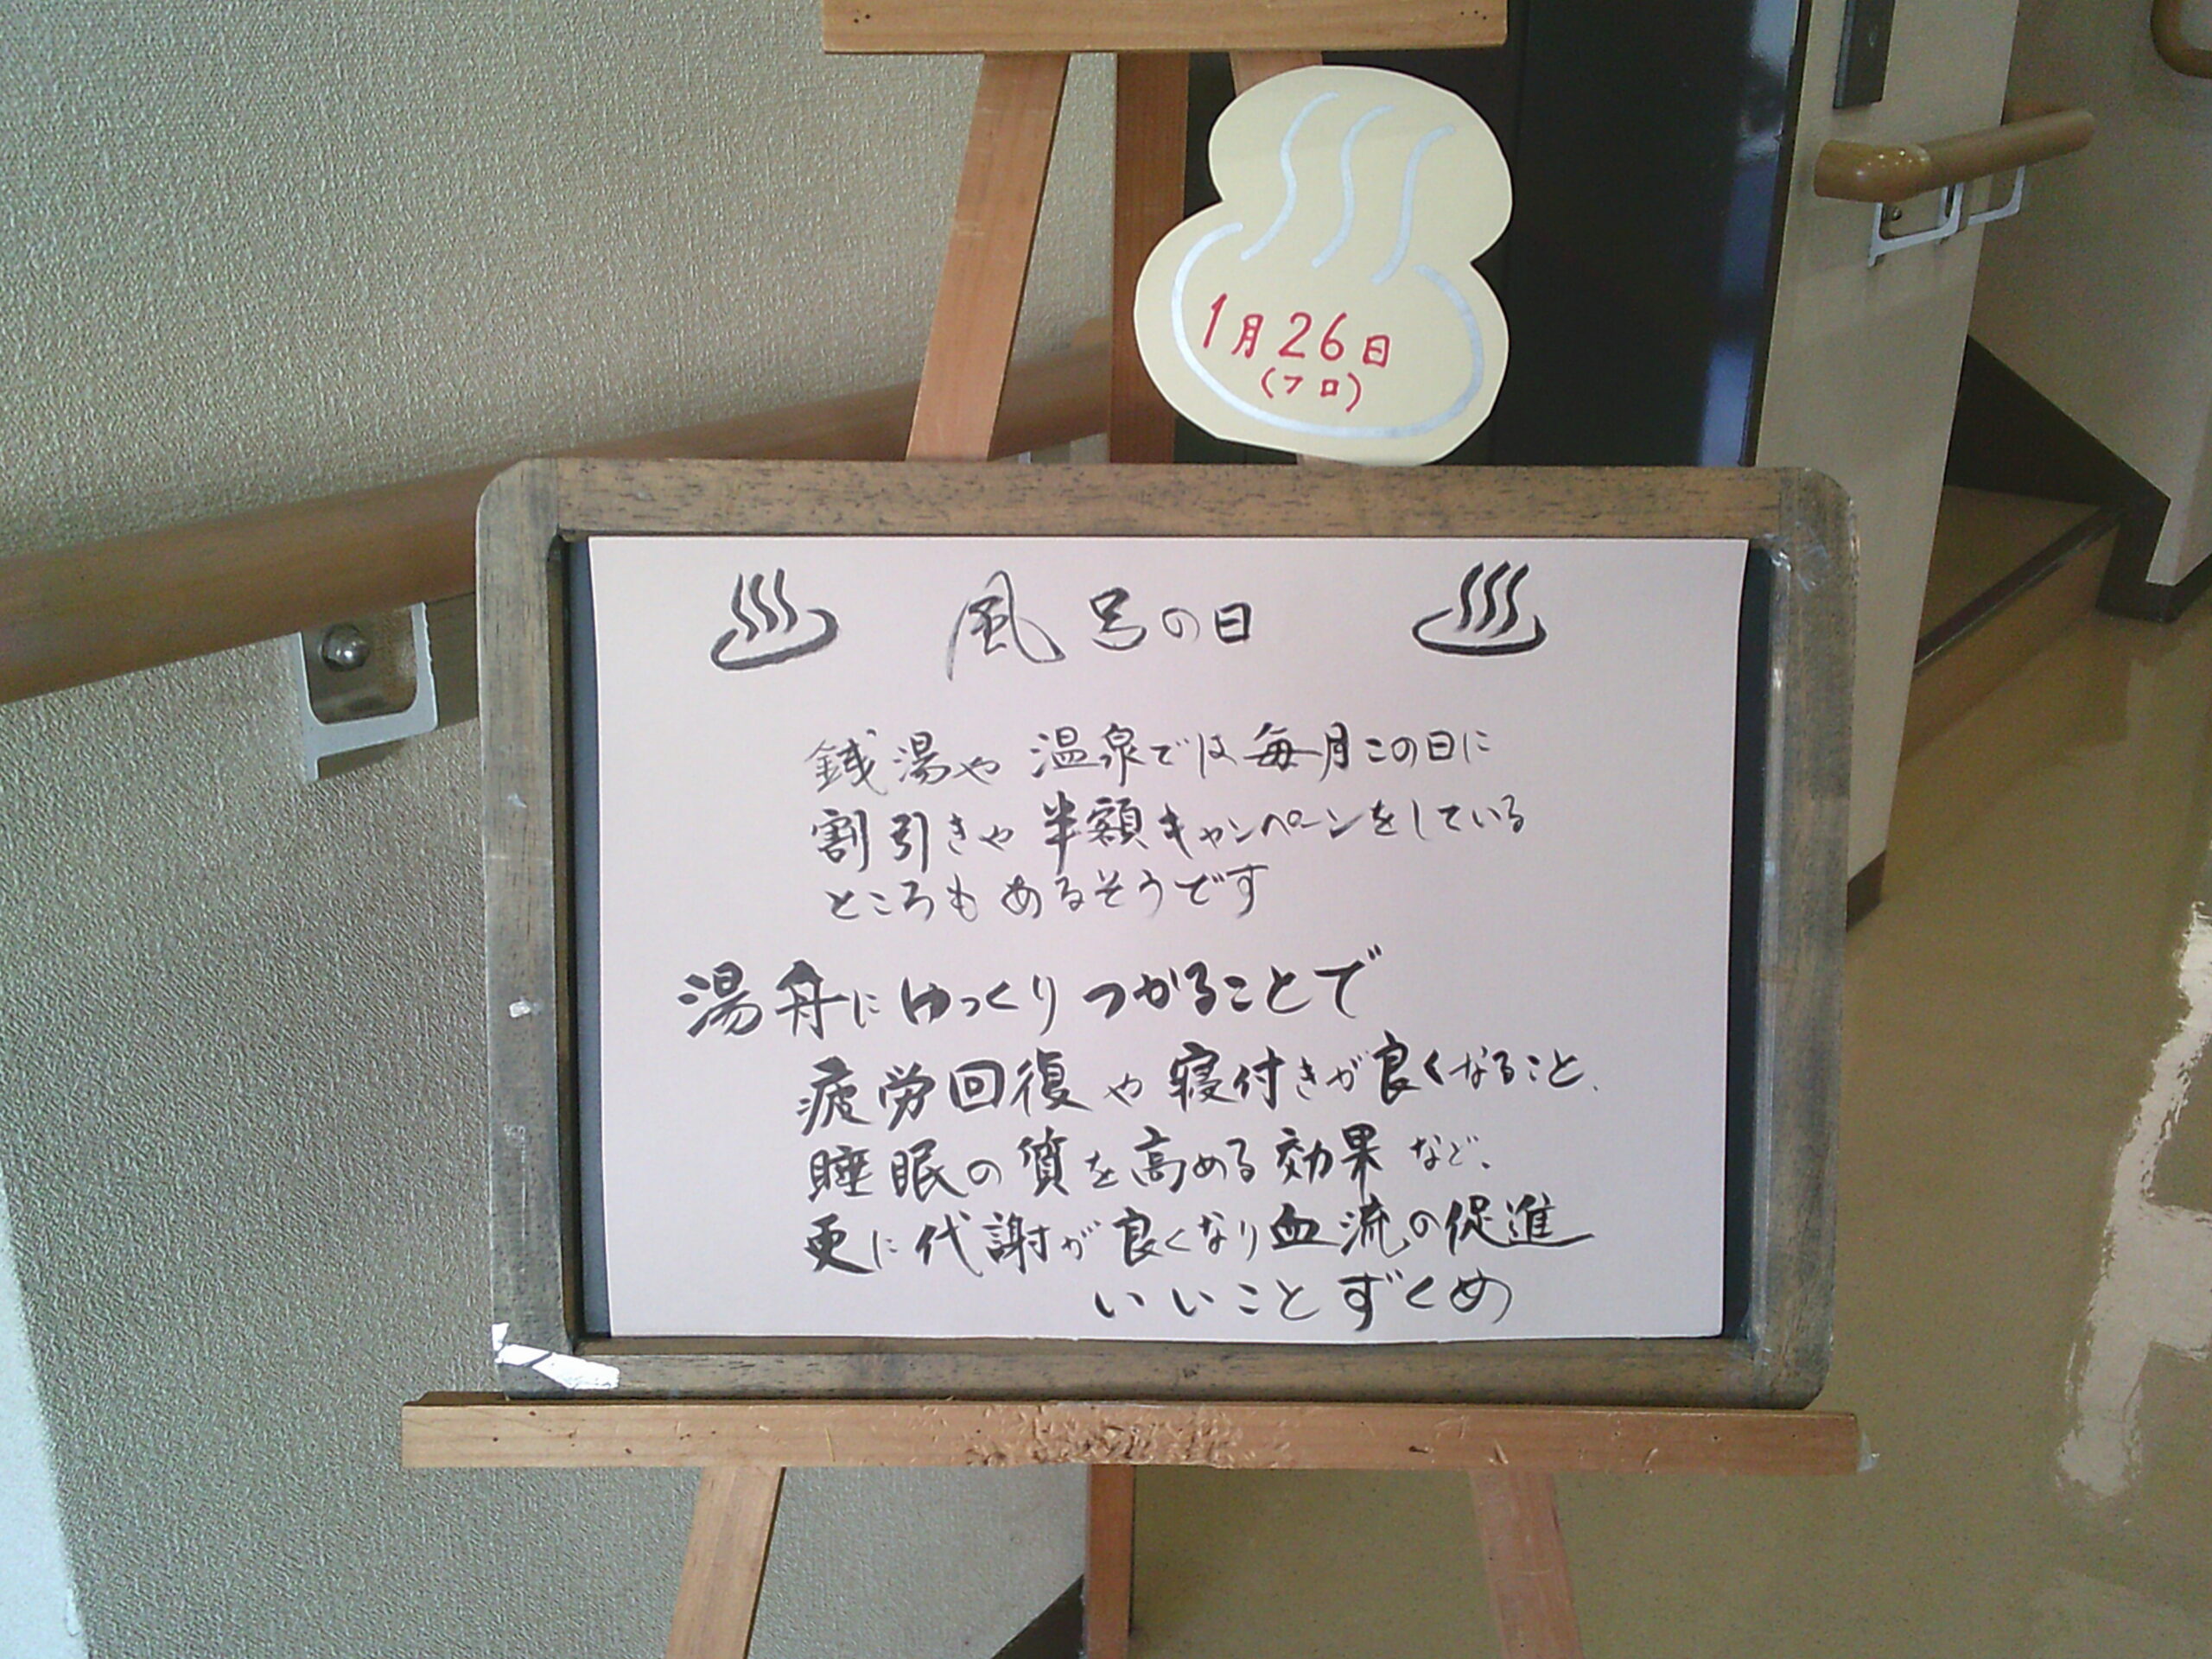 1月26日
(フロ)
♨ 風呂の日 ♨
銭湯や温泉では毎月この日に
割引きや半額キャンペーンをしている
ところもあるそうです
湯舟にゆっくりつかることで
疲労回復や寝付きが良くなること、
睡眠の質を高める効果など、
更に代謝が良くなり血流の促進
いいことずくめ